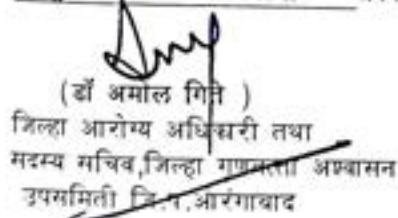 (डॉ अमोल गिते )
जिल्हा आरोग्य अधिकारी तथा
सदस्य सचिव,जिल्हा गुणवत्ता अश्वासन
उपसमिती जि.प.औरंगाबाद